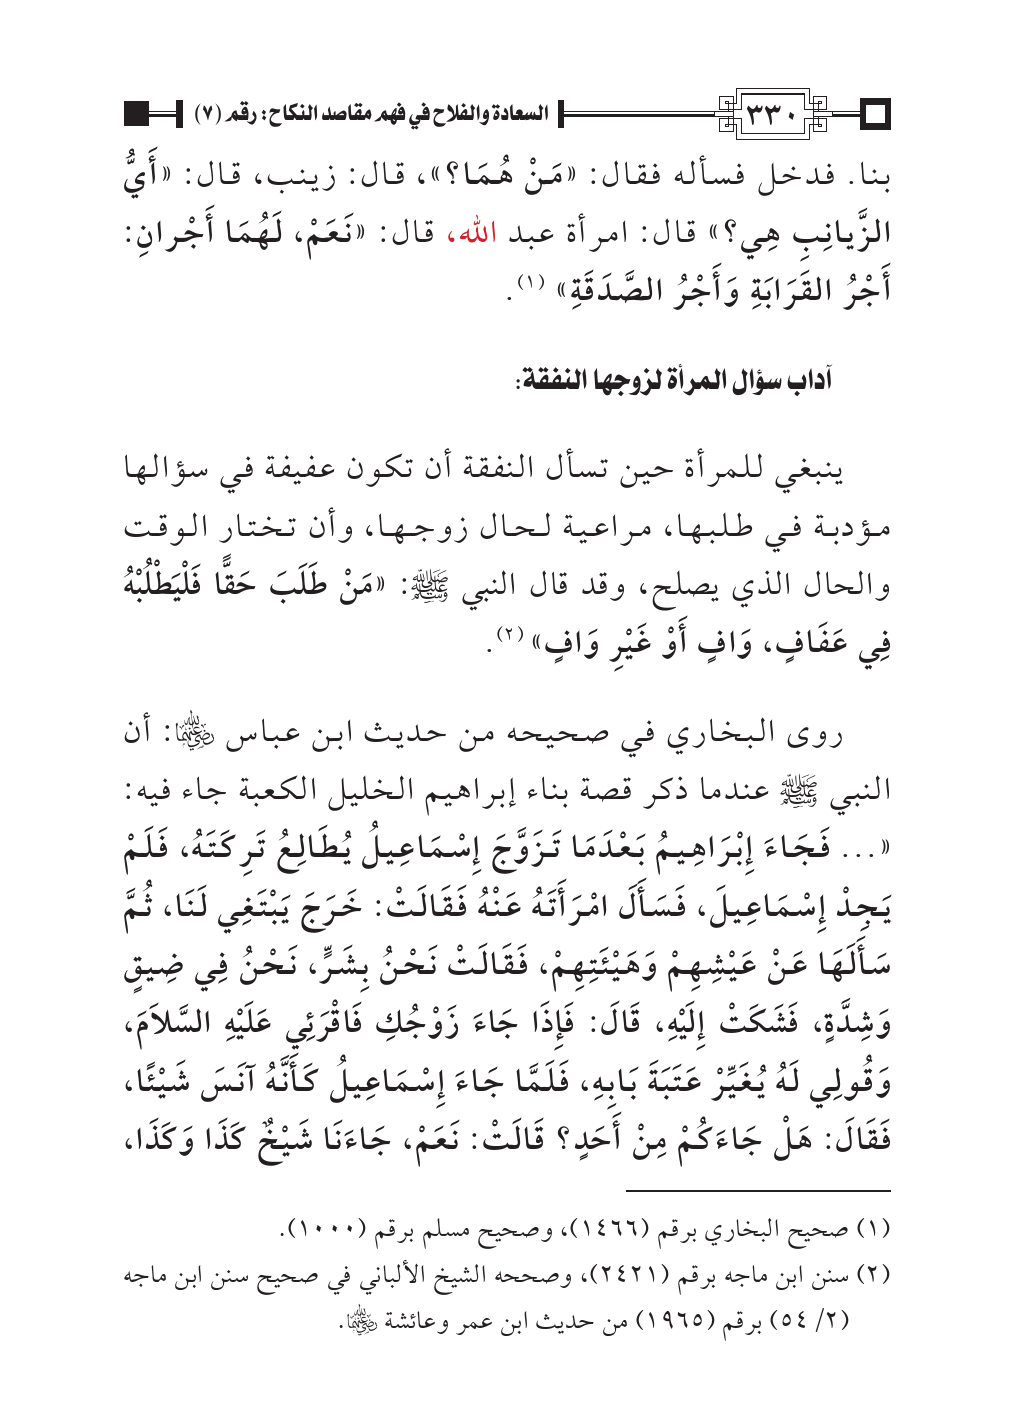 ٣٣٠ السعادة والفلاح في فهم مقاصد النكاح: رقم (٧)
بنا. فدخل فسأله فقال: «مَنْ هُمَا؟»، قال: زينب، قال: «أَيُّ
الزَّيانِبِ هِي؟» قال: امرأة عبد الله، قال: «نَعَمْ، لَهُمَا أَجْرانِ:
أَجْرُ القَرَابَةِ وَأَجْرُ الصَّدَقَةِ» (١).
آداب سؤال المرأة لزوجها النفقة:
ينبغي للمرأة حين تسأل النفقة أن تكون عفيفة في سؤالها
مؤدبة في طلبها، مراعية لحال زوجها، وأن تختار الوقت
والحال الذي يصلح، وقد قال النبي ﷺ: «مَنْ طَلَبَ حَقًّا فَلْيَطْلُبْهُ
فِي عَفَافٍ، وَافٍ أَوْ غَيْرِ وَافٍ» (٢).
روى البخاري في صحيحه من حديث ابن عباس رضي الله عنهما: أن
النبي ﷺ عندما ذكر قصة بناء إبراهيم الخليل الكعبة جاء فيه:
«... فَجَاءَ إِبْرَاهِيمُ بَعْدَمَا تَزَوَّجَ إِسْمَاعِيلُ يُطَالِعُ تَرِكَتَهُ، فَلَمْ
يَجِدْ إِسْمَاعِيلَ، فَسَأَلَ امْرَأَتَهُ عَنْهُ فَقَالَتْ: خَرَجَ يَبْتَغِي لَنَا، ثُمَّ
سَأَلَهَا عَنْ عَيْشِهِمْ وَهَيْئَتِهِمْ، فَقَالَتْ نَحْنُ بِشَرٍّ، نَحْنُ فِي ضِيقٍ
وَشِدَّةٍ، فَشَكَتْ إِلَيْهِ، قَالَ: فَإِذَا جَاءَ زَوْجُكِ فَاقْرَئِي عَلَيْهِ السَّلاَمَ،
وَقُولِي لَهُ يُغَيِّرْ عَتَبَةَ بَابِهِ، فَلَمَّا جَاءَ إِسْمَاعِيلُ كَأَنَّهُ آنَسَ شَيْئًا،
فَقَالَ: هَلْ جَاءَكُمْ مِنْ أَحَدٍ؟ قَالَتْ: نَعَمْ، جَاءَنَا شَيْخٌ كَذَا وَكَذَا،
(١) صحيح البخاري برقم (١٤٦٦)، وصحيح مسلم برقم (١٠٠٠).
(٢) سنن ابن ماجه برقم (٢٤٢١)، وصححه الشيخ الألباني في صحيح سنن ابن ماجه
(٢/ ٥٤) برقم (١٩٦٥) من حديث ابن عمر وعائشة رضي الله عنهما.